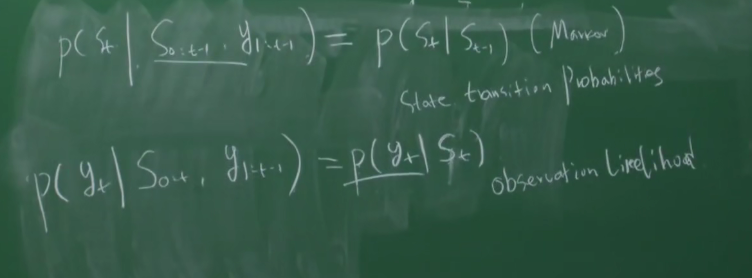 p(S_t | S_{0:t-1}, y_{1:t-1}) = p(S_t | S_{t-1}) (Markov)
State transition Probabilites
p(y_t | S_{0:t}, y_{1:t-1}) = p(y_t | S_t)
observation Likelihood